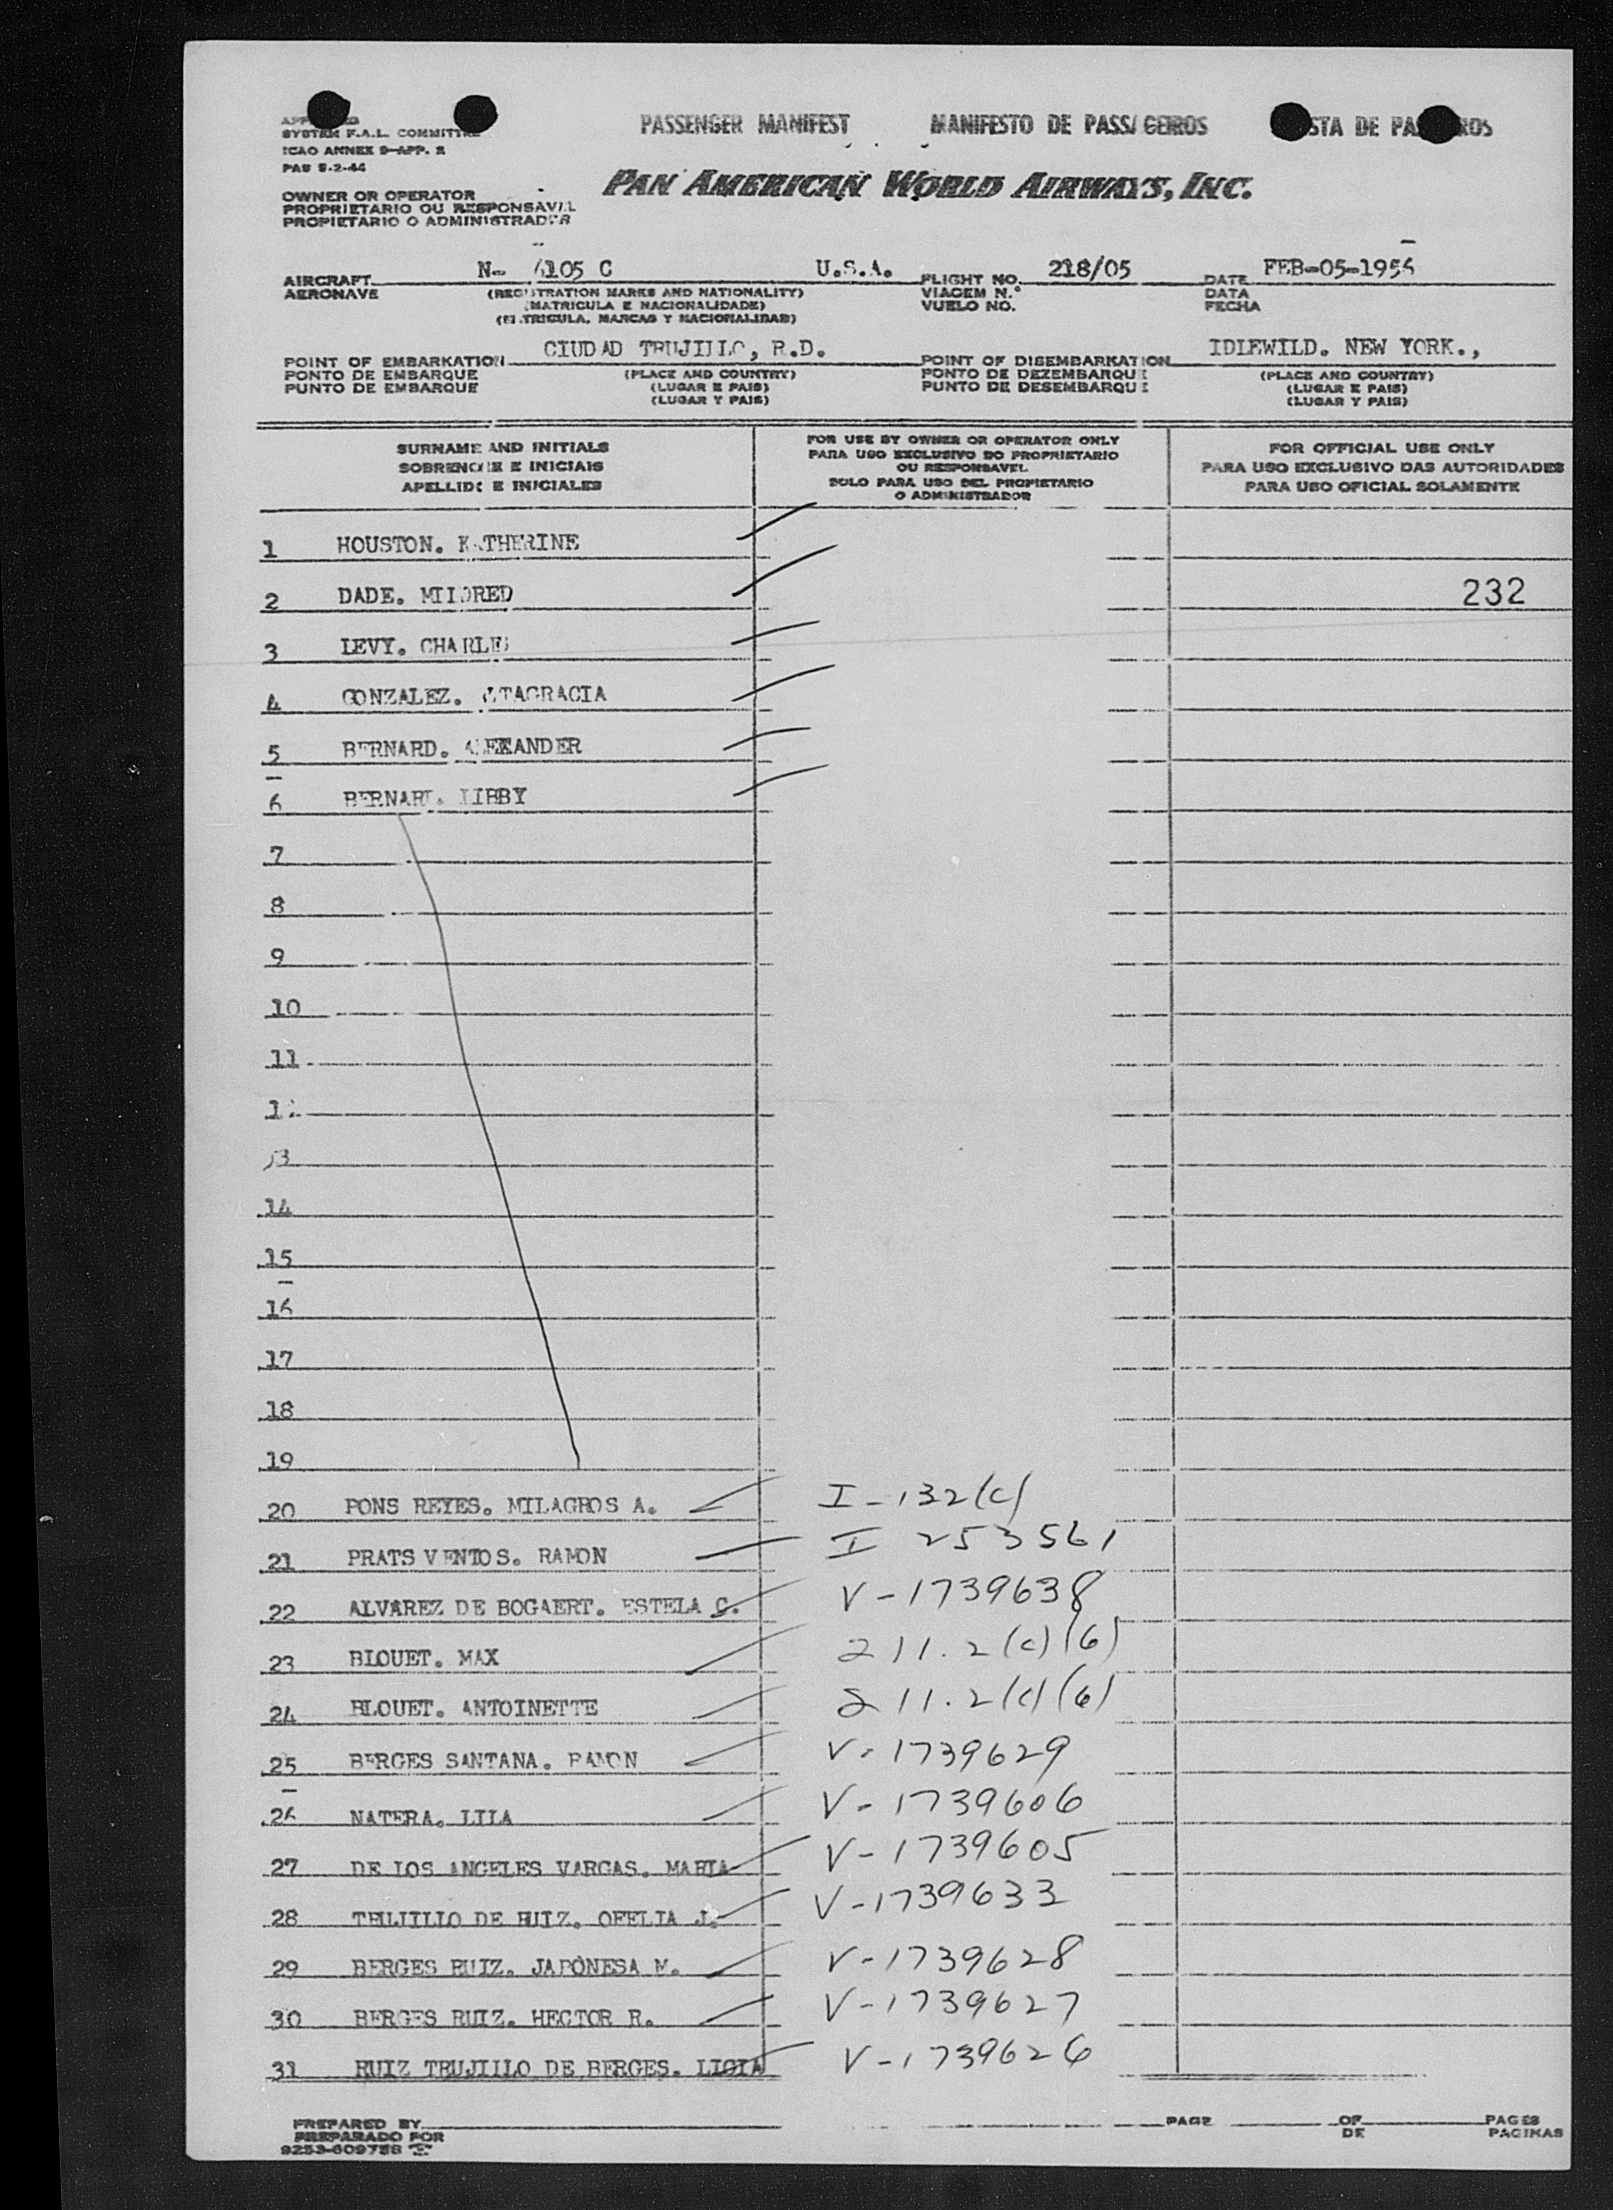 SYSTEM F.A.L. COMMITTEE
ICAO ANNEX 9-APP. 2
PAS 5-2-44
PASSENGER MANIFEST MANIFESTO DE PASSAGEIROS LISTA DE PASAJEROS
PAN AMERICAN WORLD AIRWAYS, INC.
OWNER OR OPERATOR
PROPRIETARIO OU RESPONSAVEL
PROPIETARIO O ADMINISTRADOR
AIRCRAFT N- 6105 C U.S.A. FLIGHT NO. 218/05 DATE FEB-05-1956
AERONAVE (REGISTRATION MARKS AND NATIONALITY) VIAGEM N.° DATA
(MATRICULA E NACIONALIDADE) VUELO NO. FECHA
(MATRICULA, MARCAS Y NACIONALIDAD)
POINT OF EMBARKATION CIUDAD TRUJILLO, R.D. POINT OF DISEMBARKATION IDLEWILD. NEW YORK.,
PONTO DE EMBARQUE (PLACE AND COUNTRY) PONTO DE DEZEMBARQUE (PLACE AND COUNTRY)
PUNTO DE EMBARQUE (LUGAR E PAIS) PUNTO DE DESEMBARQUE (LUGAR E PAIS)
(LUGAR Y PAIS) (LUGAR Y PAIS)
SURNAME AND INITIALS
SOBRENOME E INICIAIS
APELLIDO E INICIALES
FOR USE BY OWNER OR OPERATOR ONLY
PARA USO EXCLUSIVO DO PROPRIETARIO
OU RESPONSAVEL
SOLO PARA USO DEL PROPIETARIO
O ADMINISTRADOR
FOR OFFICIAL USE ONLY
PARA USO EXCLUSIVO DAS AUTORIDADES
PARA USO OFICIAL SOLAMENTE
1 HOUSTON. KATHERINE
2 DADE. MILDRED 232
3 LEVY. CHARLES
4 GONZALEZ. ALTAGRACIA
5 BERNARD. ALEXANDER
6 BERNARD. LIBBY
7
8
9
10
11
12
13
14
15
16
17
18
19
20 PONS REYES. MILAGROS A. I-132(c)
21 PRATS VENTOS. RAMON I 253561
22 ALVAREZ DE BOGAERT. ESTELA C. V-1739638
23 BLOUET. MAX 211.2(c)(6)
24 BLOUET. ANTOINETTE 211.2(c)(6)
25 BERGES SANTANA. RAMON V-1739629
26 NATERA. LILA V-1739606
27 DE LOS ANGELES VARGAS. MARIA V-1739605
28 TRUJILLO DE RUIZ. OFELIA J. V-1739633
29 BERGES RUIZ. JAPONESA M. V-1739628
30 BERGES RUIZ. HECTOR R. V-1739627
31 RUIZ TRUJILLO DE BERGES. LIGIA V-1739626
PREPARED BY PAGE OF PAGES
PREPARADO POR DE PAGINAS